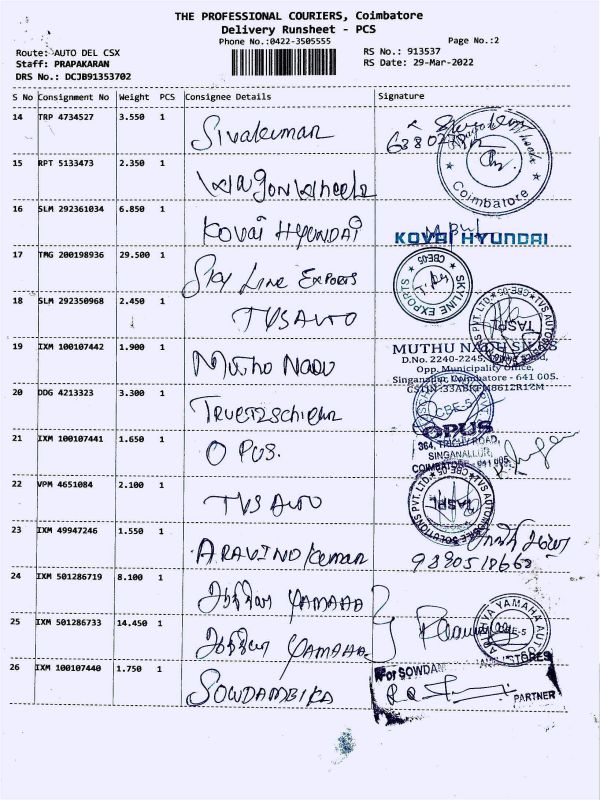 THE PROFESSIONAL COURIERS, Coimbatore
Delivery Runsheet - PCS
Phone No.:0422-3505555
Page No.:2
Route: AUTO DEL CSX
RS No.: 913537
Staff: PRAPAKARAN
RS Date: 29-Mar-2022
DRS No.: DCJB91353702
S No Consignment No Weight PCS Consignee Details Signature
14 TRP 4734527 3.550 1 Sivakumar
Coimbatore
15 RPT 5133473 2.350 1 Wagon Wheels
16 SLM 292361034 6.850 1 KOVAI HYUNDAI
KOVAI HYUNDAI
17 TMG 200198936 29.500 1 SKY LINE EXPORTS
SKYLINE EXPORTS CBE-05
18 SLM 292350968 2.450 1 TVS AUTO
TASPL
19 IXM 100107442 1.900 1 MUTHO NADU
MUTHU
D.No. 2240-2245,
Opp. Municipality Office,
Singanallur, Coimbatore - 641 005.
20 DDG 4213323 3.300 1
CBE-5
21 IXM 100107441 1.650 1 OPUS.
OPUS
364, TRICHY ROAD,
SINGANALLUR,
COIMBATORE - 641 005.
22 VPM 4651084 2.100 1 TVS AUTO
TASPL
23 IXM 49947246 1.550 1 ARAVIND Kumar
24 IXM 501286719 8.100 1 YAMAHA
25 IXM 501286733 14.450 1 YAMAHA
YAMAHA AUTO
CBE-5
26 IXM 100107440 1.750 1 SOWDAMBIKA
For SOWDAM
PARTNER